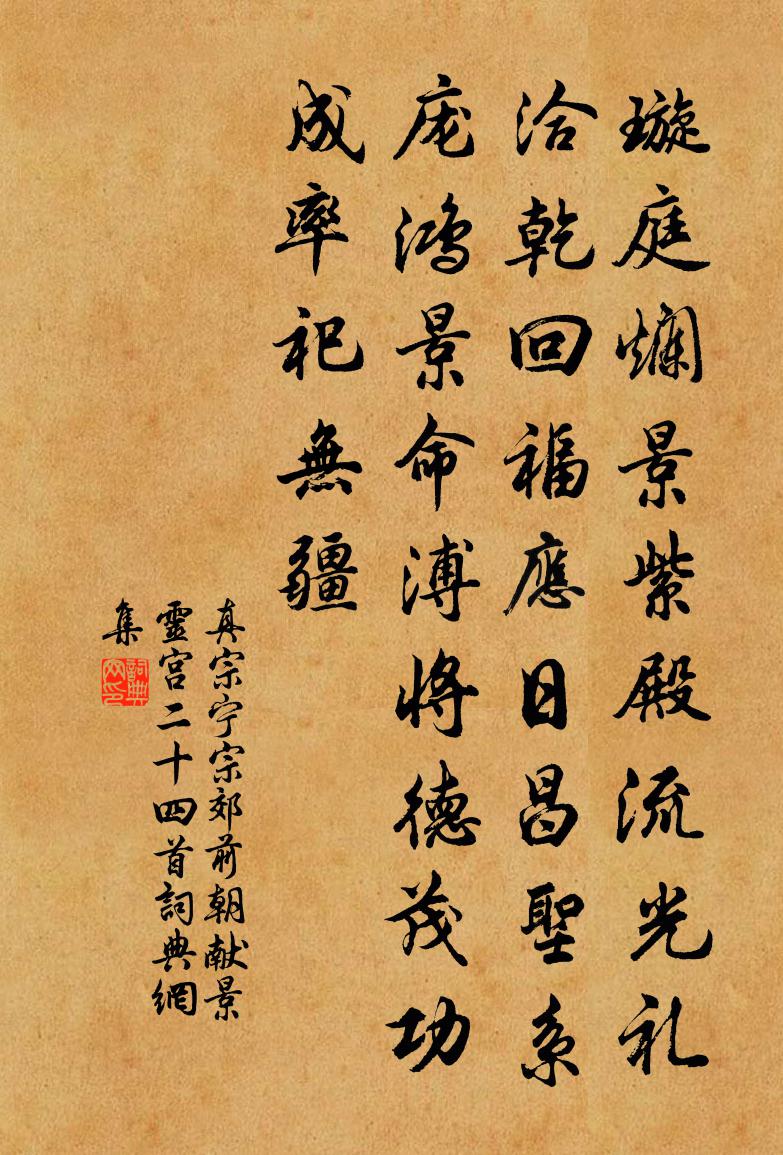 璇庭爛景紫殿流光礼
洽乾回福應日昌聖系
庬鴻景命溥將德茂功
成率祀無疆
真宗宁宗郊前朝献景
靈宮二十四首詞典網
集
詞典
网印